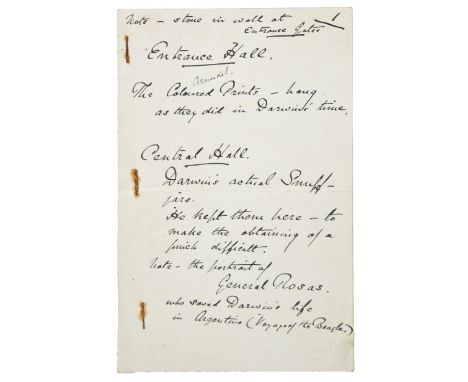 Note – stone in wall at
Entrance Gates
1
Entrance Hall.
Arundel.
The Coloured Prints – hang
as they did in Darwin's time.
Central Hall.
Darwin's actual Snuff-
jars.
He kept them here – to
make the obtaining of a
pinch difficult.
Note – the portrait of
General Rosas.
who saved Darwin's life
in Argentina (Voyage of the Beagle.)